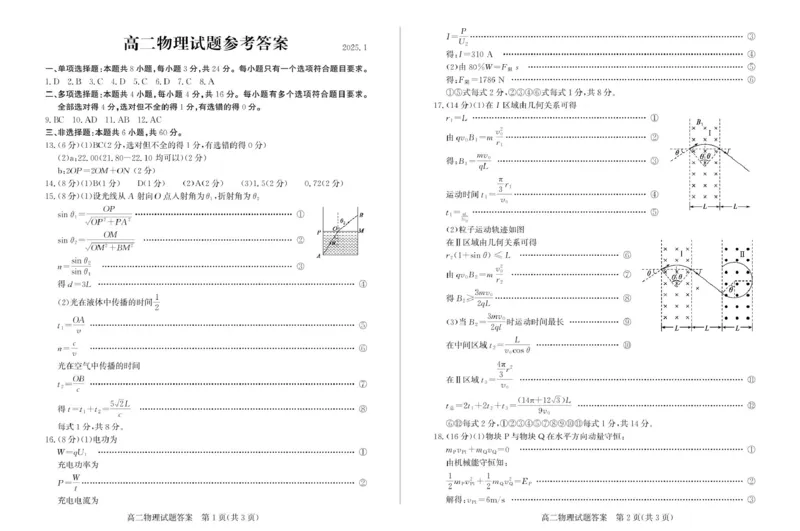 高二物理试题参考答案 2025.1
一、单项选择题:本题共8小题,每小题3分,共24分。每小题只有一个选项符合题目要求。
1.D 2.B 3.C 4.D 5.C 6.D 7.C 8.A
二、多项选择题:本题共4小题,每小题4分,共16分。每小题有多个选项符合题目要求。
全部选对得4分,选对但不全的得1分,有选错的得0分。
9.BC 10.AD 11.AB 12.AC
三、非选择题:本题共6小题,共60分。
13.(6分)(1)BC(2分,选对但不全的得1分,有选错的得0分)
(2)a:22.00(21.80~22.10均可以)(2分)
b:2OP=2OM+ON(2分)
14.(8分)(1)B(1分) D(1分) (2)A(2分) (3)1.5(2分) 0.72(2分)
15.(8分)(1)设光线从A射向O点入射角为θ₁,折射角为θ₂
sin θ₁=OP/√(OP²+PA²) ①
sin θ₂=OM/√(OM²+BM²) ②
n=sin θ₂/sin θ₁ ③
得d=3L ④
(2)光在液体中传播的时间1/2
t₁=OA/v ⑤
n=c/v ⑥
光在空气中传播的时间
t₂=OB/c ⑦
得t=t₁+t₂=5√2L/c ⑧
每式1分,共8分。
16.(8分)(1)电功为
W=qU₁ ①
充电功率为
P=W/t ②
充电电流为
高二物理试题答案 第1页(共3页)
I=P/U₂ ③
得:I=310 A ④
(2)由80%W=F阻 s ⑤
得:F阻=1786 N ⑥
①⑤式每式2分,②③④⑥式每式1分,共8分。
17.(14分)(1)在Ⅰ区域由几何关系可得
r₁=L ①
由qv₀B₁=m v₀²/r₁ ②
得:B₁=mv₀/qL ③
运动时间t₁=(π/3)r₁/v₀ ④
t₁= ⑤
(2)粒子运动轨迹如图
在Ⅱ区域由几何关系可得
r₂(1+sin θ)≤L ⑥
由qv₀B₂=m v₀²/r₂ ⑦
得B₂≥3mv₀/2qL ⑧
(3)当B₂=3mv₀/2ql时运动时间最长 ⑨
在中间区域t₂=L/v₀cos θ ⑩
在Ⅱ区域t₃=(4π/3)r²/v₀ ⑪
t总=2t₁+2t₂+t₃=(14π+12√3)L/9v₀ ⑫
⑥⑫每式2分,①②③④⑤⑦⑧⑨⑩⑪每式1分,共14分。
18.(16分)(1)物块P与物块Q在水平方向动量守恒:
mPvP1+mQvQ=0 ①
由机械能守恒知:
1/2 mPvP1²+1/2 mQvQ²=EP ②
解得:vP1=6m/s ③
高二物理试题答案 第2页(共3页)